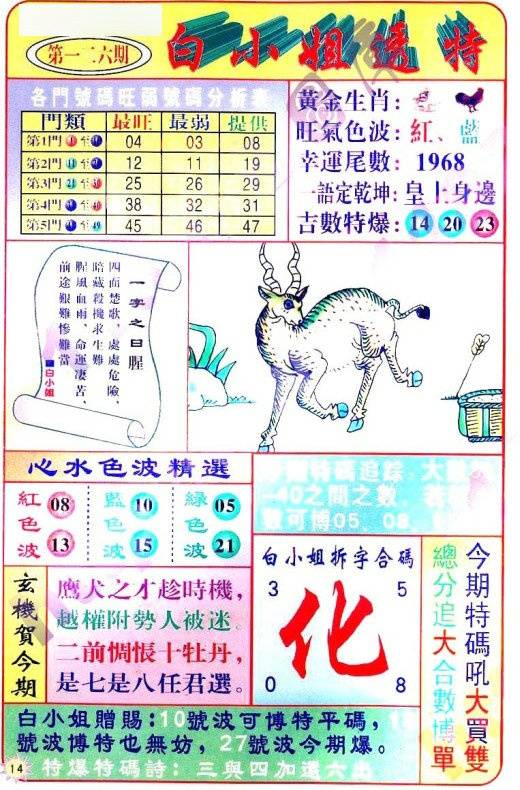 第一二六期
白小姐透特
各門號碼旺弱號碼分析表
門類 最旺 最弱 提供
第1門 至 04 03 08
第2門 至 12 11 19
第3門 至 25 26 29
第4門 至 38 32 31
第5門 至 49 45 46 47
黃金生肖:
旺氣色波:紅、藍
幸運尾數:1968
一語定乾坤:皇上身邊
吉數特爆:14 20 23
一字之曰腥
四面楚歌,處處危險,
暗藏殺機求生難
腥風血雨,命運凄苦,
前途艱難慘難當
白小姐
心水色波精選
紅色波 08 13
藍色波 10 15
綠色波 05 21
特碼追踪:大
-40之間之數
數可博05、08、
玄機賀今期
鷹犬之才趁時機,
越權附勢人被迷
二前惆悵十牡丹,
是七是八任君選。
白小姐拆字合碼
3 5
化
0 8
今期特碼吼大買雙
總分追大合數博單
白小姐贈賜:10號波可博特平碼,
號波博特也無妨,27號波今期爆。
特爆特碼詩:三與四加還六出
14